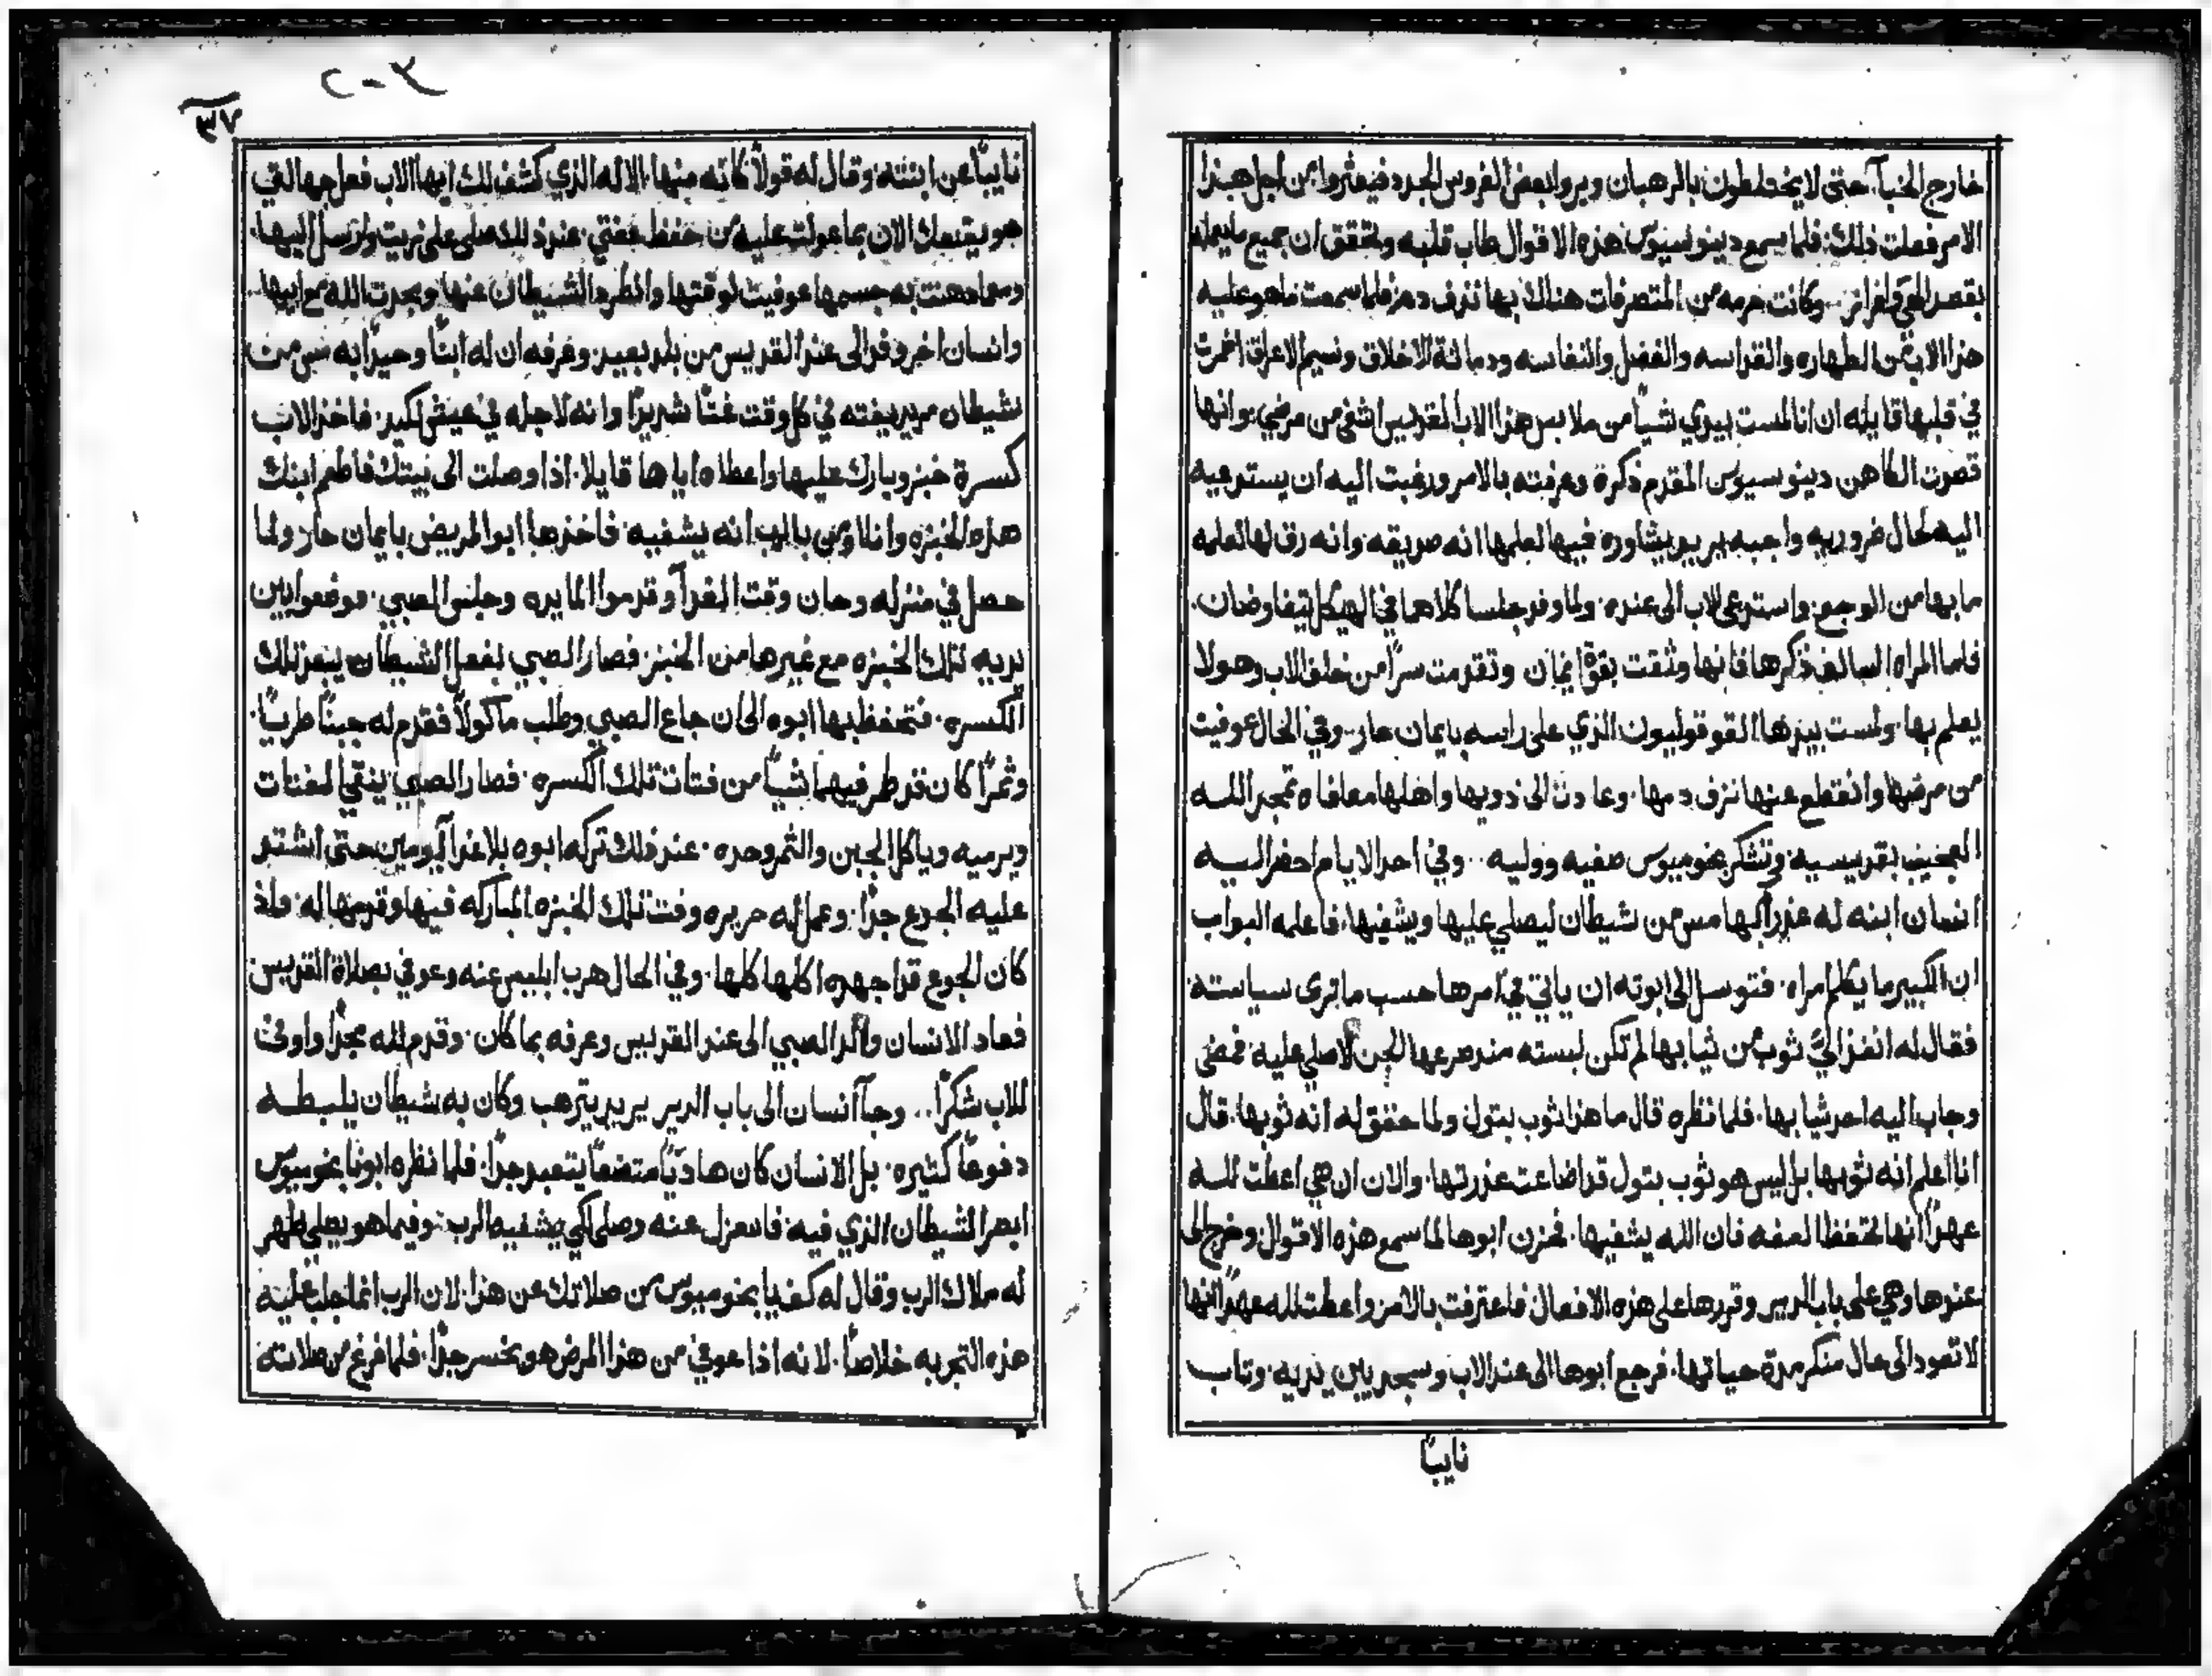 خارج الخبآ حتى لا يختلطون بالرهبان ويروا بعض الغروس الجدد فيعثروا من اجل هذا
الامر فعلت ذلك فلما سمع ديونوسيوس هذه الاقوال طاب قلبه وتحقق ان جميع ما يعمله
بقصد الهي وافراز وكانت حرمه من المتصرفات هناك بها نزف دم فلما سمعت ماهو عليه
هذا الاب من الطهاره والقداسه والفضل والنفاسه ودماثة الاخلاق ونسيم الاعراق اضمرت
في قلبها قايله ان انا لمست بيدي شيا من ملابس هذا الاب القديس اشفى من مرضي وانها
قصدت الكاهن ديونوسيوس المقدم ذكره وعرفته بالامر ورغبت اليه ان يستدعيه
اليه لحال ضروريه واجبه يريد يشاوره فيها لعلمها انه صديقه وانه رق لها لعلمه
مابها من الوجع واستدعى الاب الى عنده ولما وفد جلسا كلاهما في الهيكل يتفاوضان
فاما المراه السالف ذكرها فانها وثقت بقوة ايمان وتقدمت سرا من خلف الاب وهولا
يعلم بها ولمست بيدها القوقوليون الذي على راسه بايمان حار وفي الحال عوفيت
من مرضها وانقطع عنها نزف دمها وعادت الى ذويها واهلها معافاه تمجد اللـه
العجيب بقديسيه وتشكر بخوميوس صفيه ووليه وفي احد الايام احضر اليـه
انسان ابنه له عذرآ بها مس من شيطان ليصلي عليها ويشفيها فاعلمه البواب
ان الكبير ما يكلم امراه فتوسل الى ابوته ان ياتي في امرها حسب ما ترى سياسته
فقال له انفذ الي ثوب من ثيابها لم تكن لبسته منذ صرعها الجن لاصلي عليه فمضى
وجاب اليه احد ثيابها فلما نظره قال ما هذا ثوب بتول ولما حقق له انه ثوبها قال
انا اعلم انه ثوبها بل ليس هو ثوب بتول قد اضاعت عذرتها والان ان هي اعطت للـه
عهدا انها تحتفظ العفه فان الله يشفيها فحزن ابوها لما سمع هذه الاقوال وخرج الى
عندها وهي على باب الدير وقررها على هذه الافعال فاعترفت بالامر واعطت لله عهدا انها
لا تعود الى حال منكر مدة حياتها فرجع ابوها الى عند الاب وسجد بين يديه وتاب
نايبا
٣٧
نايبا عن ابنته وقال له قولا كانه منها الاله الذي كشف لك ايها الاب فعل جهالتي
هو يقنعك الان بما عولت عليه من حفظ عفتي عند ذلك صلى على زيت وارسل اليها
وسادهنت به جسمها عوفيت لوقتها وانطرد الشيطان عنها ومجدت الله مع ابيها
وانسان اخر وفد الى عند القديس من بلد بعيد وعرفه ان له ابنا وحيدا به مس من
شيطان مريد يغته في كل وقت غتا شديدا وانه لاجله في عيش نكير فاخذ الاب
كسرة خبز وبارك عليها واعطاه اياها قايلا اذا وصلت الى بيتك فاطعم ابنك
هذه الخبزه وانا اومن بالرب انه يشفيه فاخذها ابو المريض بايمان حار ولما
حصل في منزله وحان وقت الغدآ وقدموا المايده وجلس الصبي فوضعوا بين
يديه تلك الخبزه مع غيرها من الخبز فصار الصبي بفعل الشيطان يبعد تلك
الكسره فتحفظ بها ابوه الى ان جاع الصبي وطلب ماكولا فقدم له جبنا طريا
وثمرا كان قد طمر فيهما شيا من فتات تلك الكسره فصار الصبي ينقي الفتات
ويرميه وياكل الجبن والثمر وحده عند ذلك تركه ابوه بلا غدآ يومين حتى اشتد
عليه الجوع جدا وعمل له حريره وفت تلك الخبزه المباركه فيها وقدمها له واذ
كان الجوع قد اجهده اكلها كلها وفي الحال هرب ابليس عنه وعوفي بصلاة القديس
فعاد الانسان والد الصبي الى عند القديس وعرفه بما كان وقدم لله مجدا واوفى
للاب شكرا وجآ انسان الى باب الدير يريد يترهب وكان به شيطان يلبطـه
دفوعا كثيره بل الانسان كان هاديا متضعا يتعبد جدا فلما نظره ابونا بخوميوس
ابصر الشيطان الذي فيه فانعزل عنه وصلى لكي يشفيه الرب وفيما هو يصلي ظهر
له ملاك الرب وقال له كف يا بخوميوس من صلاتك عن هذا لان الرب انما جلب عليه
هذه التجربه خلاصا لانه اذا عوفي من هذا المرض هو يخسر جدا فلما فرغ من صلاته